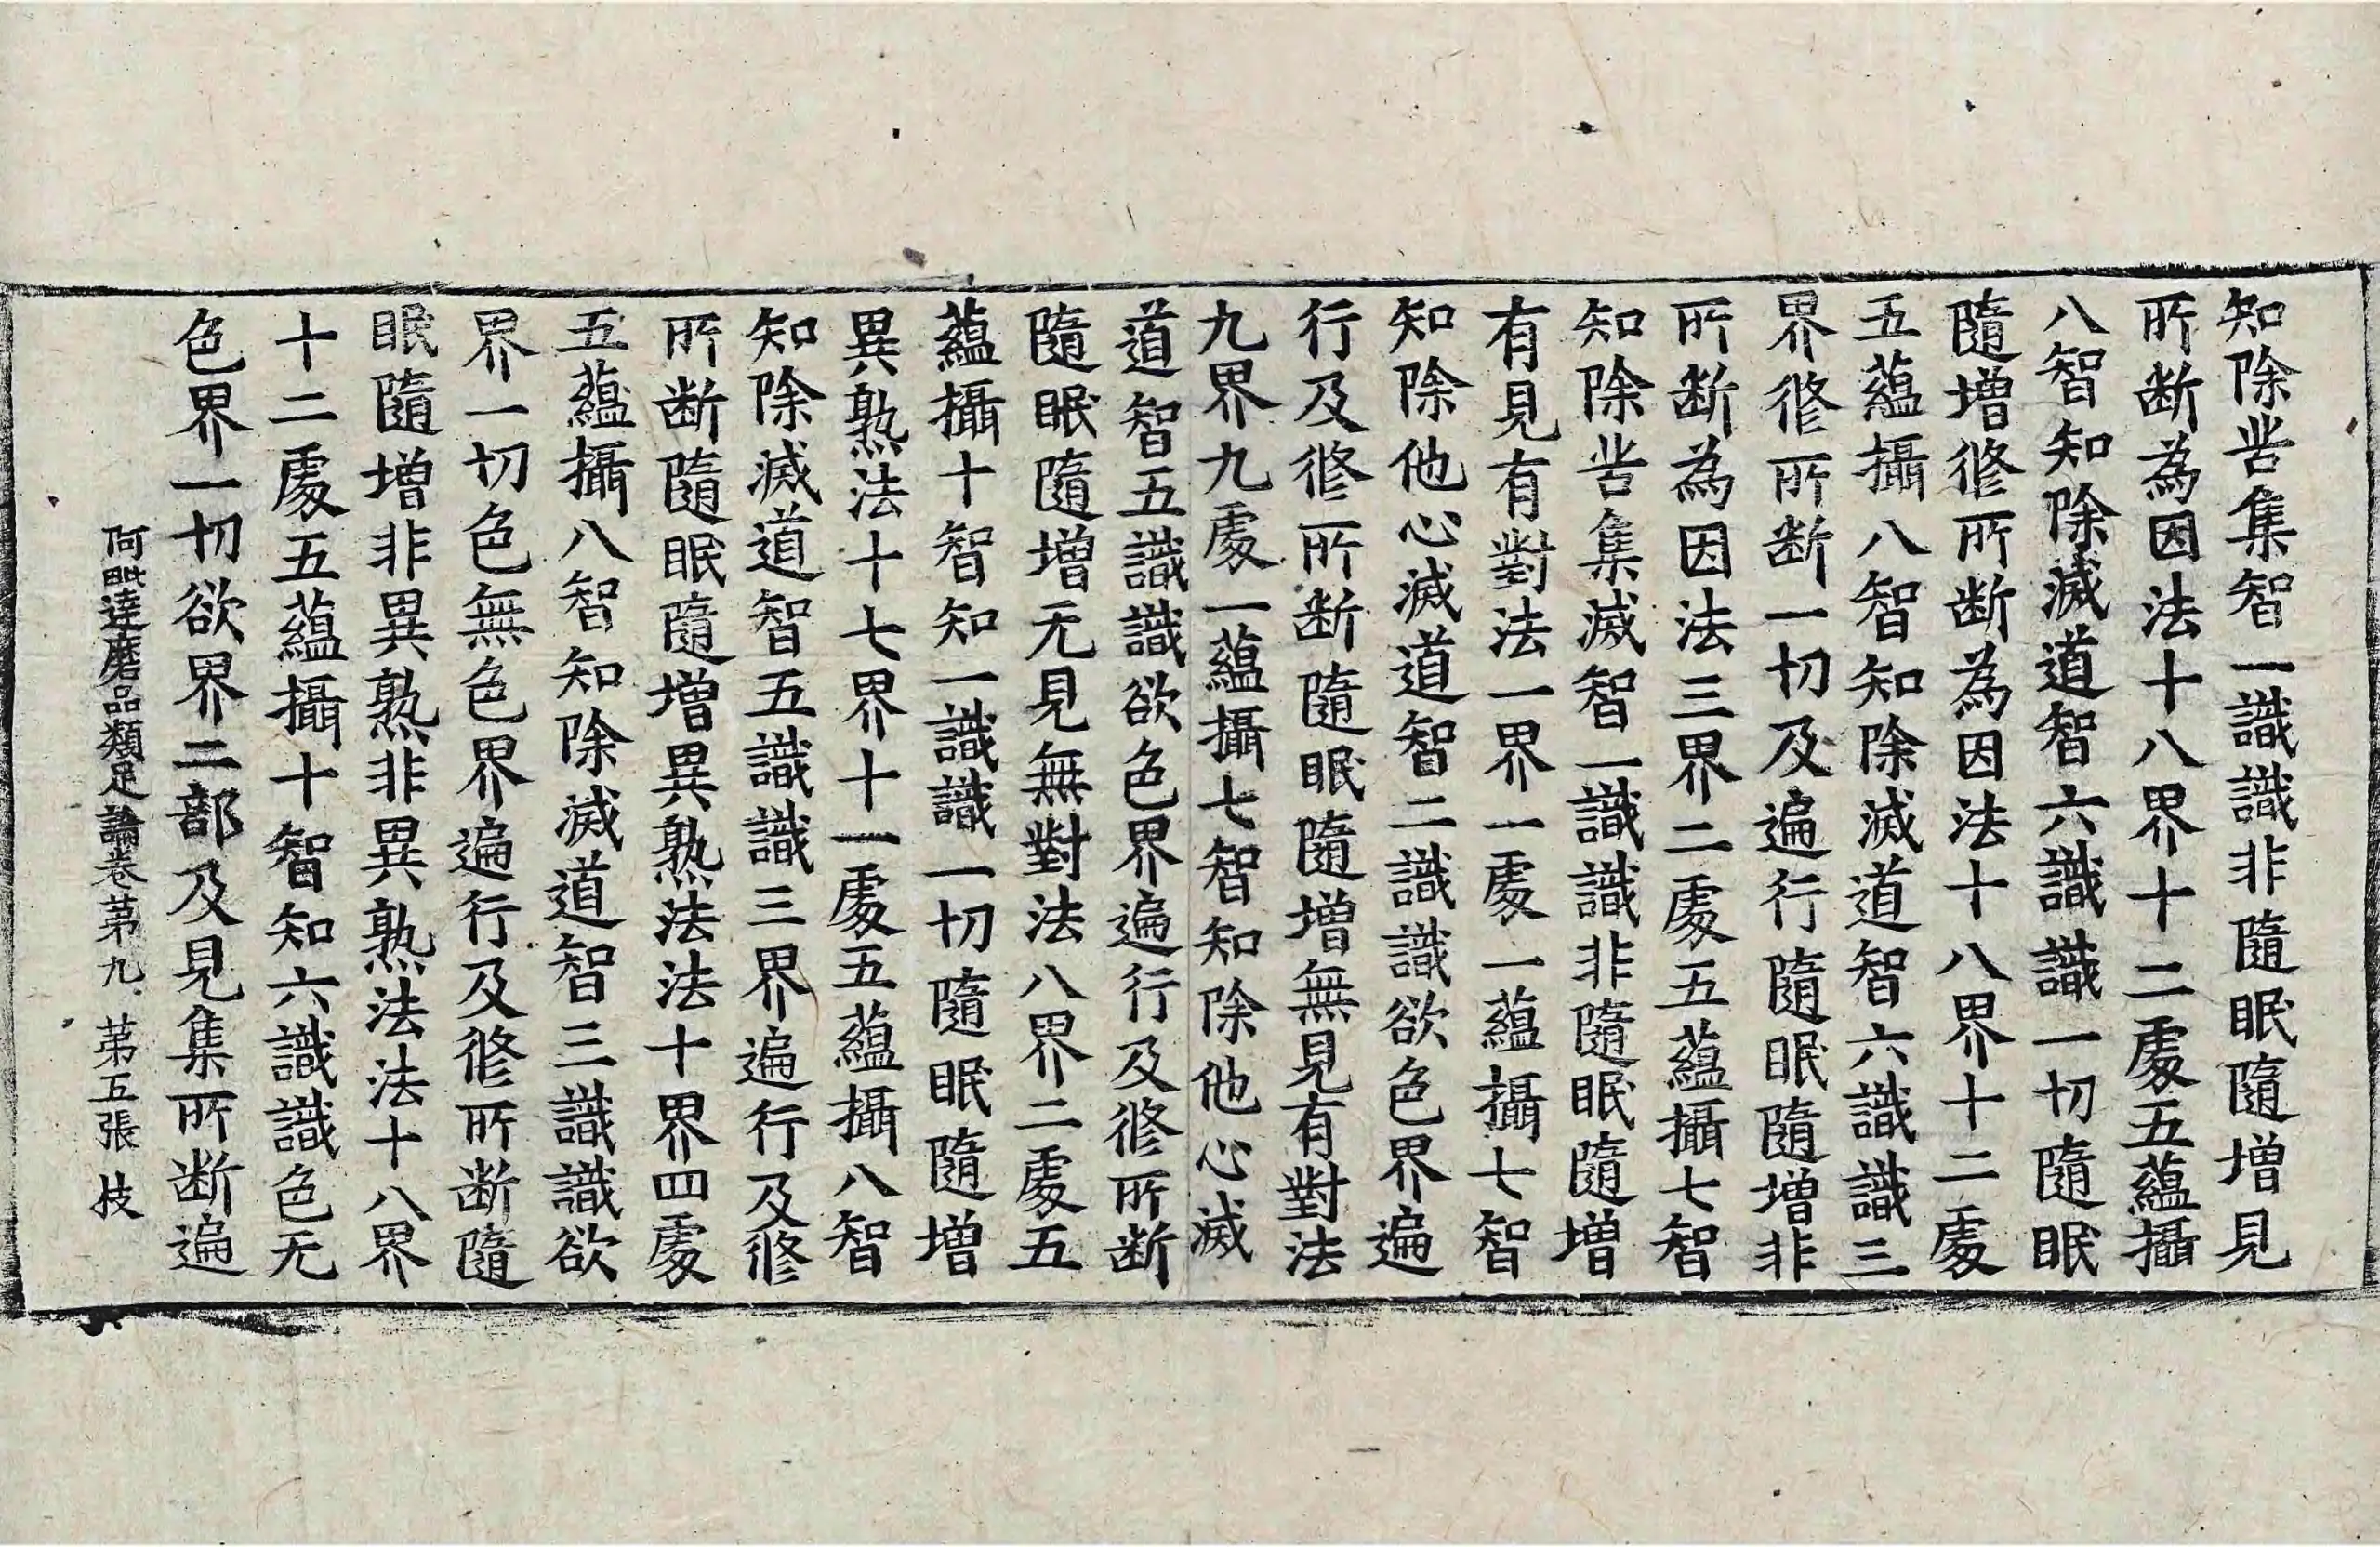 知除苦集智一識識非隨眠隨增見
所断為因法十八界十二處五蘊攝
八智知除滅道智六識識一切隨眠
隨增修所断為因法十八界十二處
五蘊攝八智知除滅道智六識識三
界修所断一切及遍行隨眠隨增非
所断為因法三界二處五蘊攝七智
知除苦集滅智一識識非隨眠隨增
有見有對法一界一處一蘊攝七智
知除他心滅道智二識識欲色界遍
行及修所断隨眠隨增無見有對法
九界九處一蘊攝七智知除他心滅
道智五識識欲色界遍行及修所断
隨眠隨增无見無對法八界二處五
蘊攝十智知一識識一切隨眠隨增
異熟法十七界十一處五蘊攝八智
知除滅道智五識識三界遍行及修
所断隨眠隨增異熟法法十界四處
五蘊攝八智知除滅道智三識識欲
界一切色無色界遍行及修所断隨
眠隨增非異熟非異熟法法十八界
十二處五蘊攝十智知六識識色无
色界一切欲界二部及見集所断遍
阿毗達磨品類足論卷苐九 苐五張 技